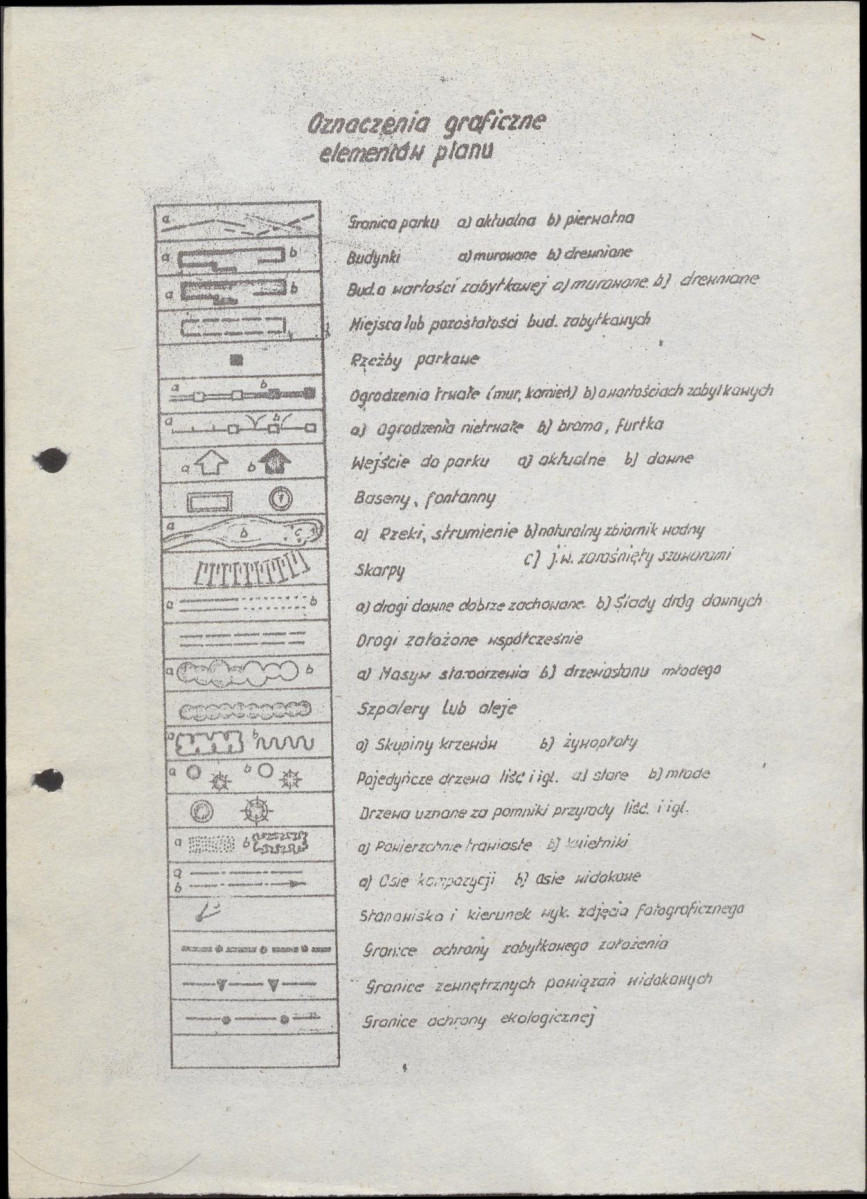 Oznaczenia graficzne
elementów planu
a
Granica parku a) aktualna b) pierwotna
a b
Budynki a) murowane b) drewniane
a b
Bud. o wartości zabytkowej a) murowane b) drewniane
Miejsca lub pozostałości bud. zabytkowych
Rzeźby parkowe
a b
Ogrodzenia trwałe (mur, kamień) b) o wartościach zabytkowych
a b
a) Ogrodzenia nietrwałe b) brama, furtka
a b
Wejście do parku a) aktualne b) dawne
Baseny, fontanny
a b c
a) Rzeki, strumienie b) naturalny zbiornik wodny
c) j.w. zarośnięty szuwarami
Skarpy
a b
a) drogi dawne dobrze zachowane. b) Ślady dróg dawnych
Drogi założone współcześnie
a b
a) Masyw starodrzewia b) drzewostanu młodego
Szpalery lub aleje
a b
a) Skupiny krzewów b) żywopłoty
a b
Pojedyńcze drzewa liść i igl. a) stare b) młode
Drzewa uznane za pomniki przyrody liść. i igl.
a b
a) Powierzchnie trawiaste b) kwietniki
a
b
a) Osie kompozycji b) Osie widokowe
Stanowiska i kierunek wyk. zdjęcia fotograficznego
Granice ochrony zabytkowego założenia
Granice zewnętrznych powiązań widokowych
Granice ochrony ekologicznej